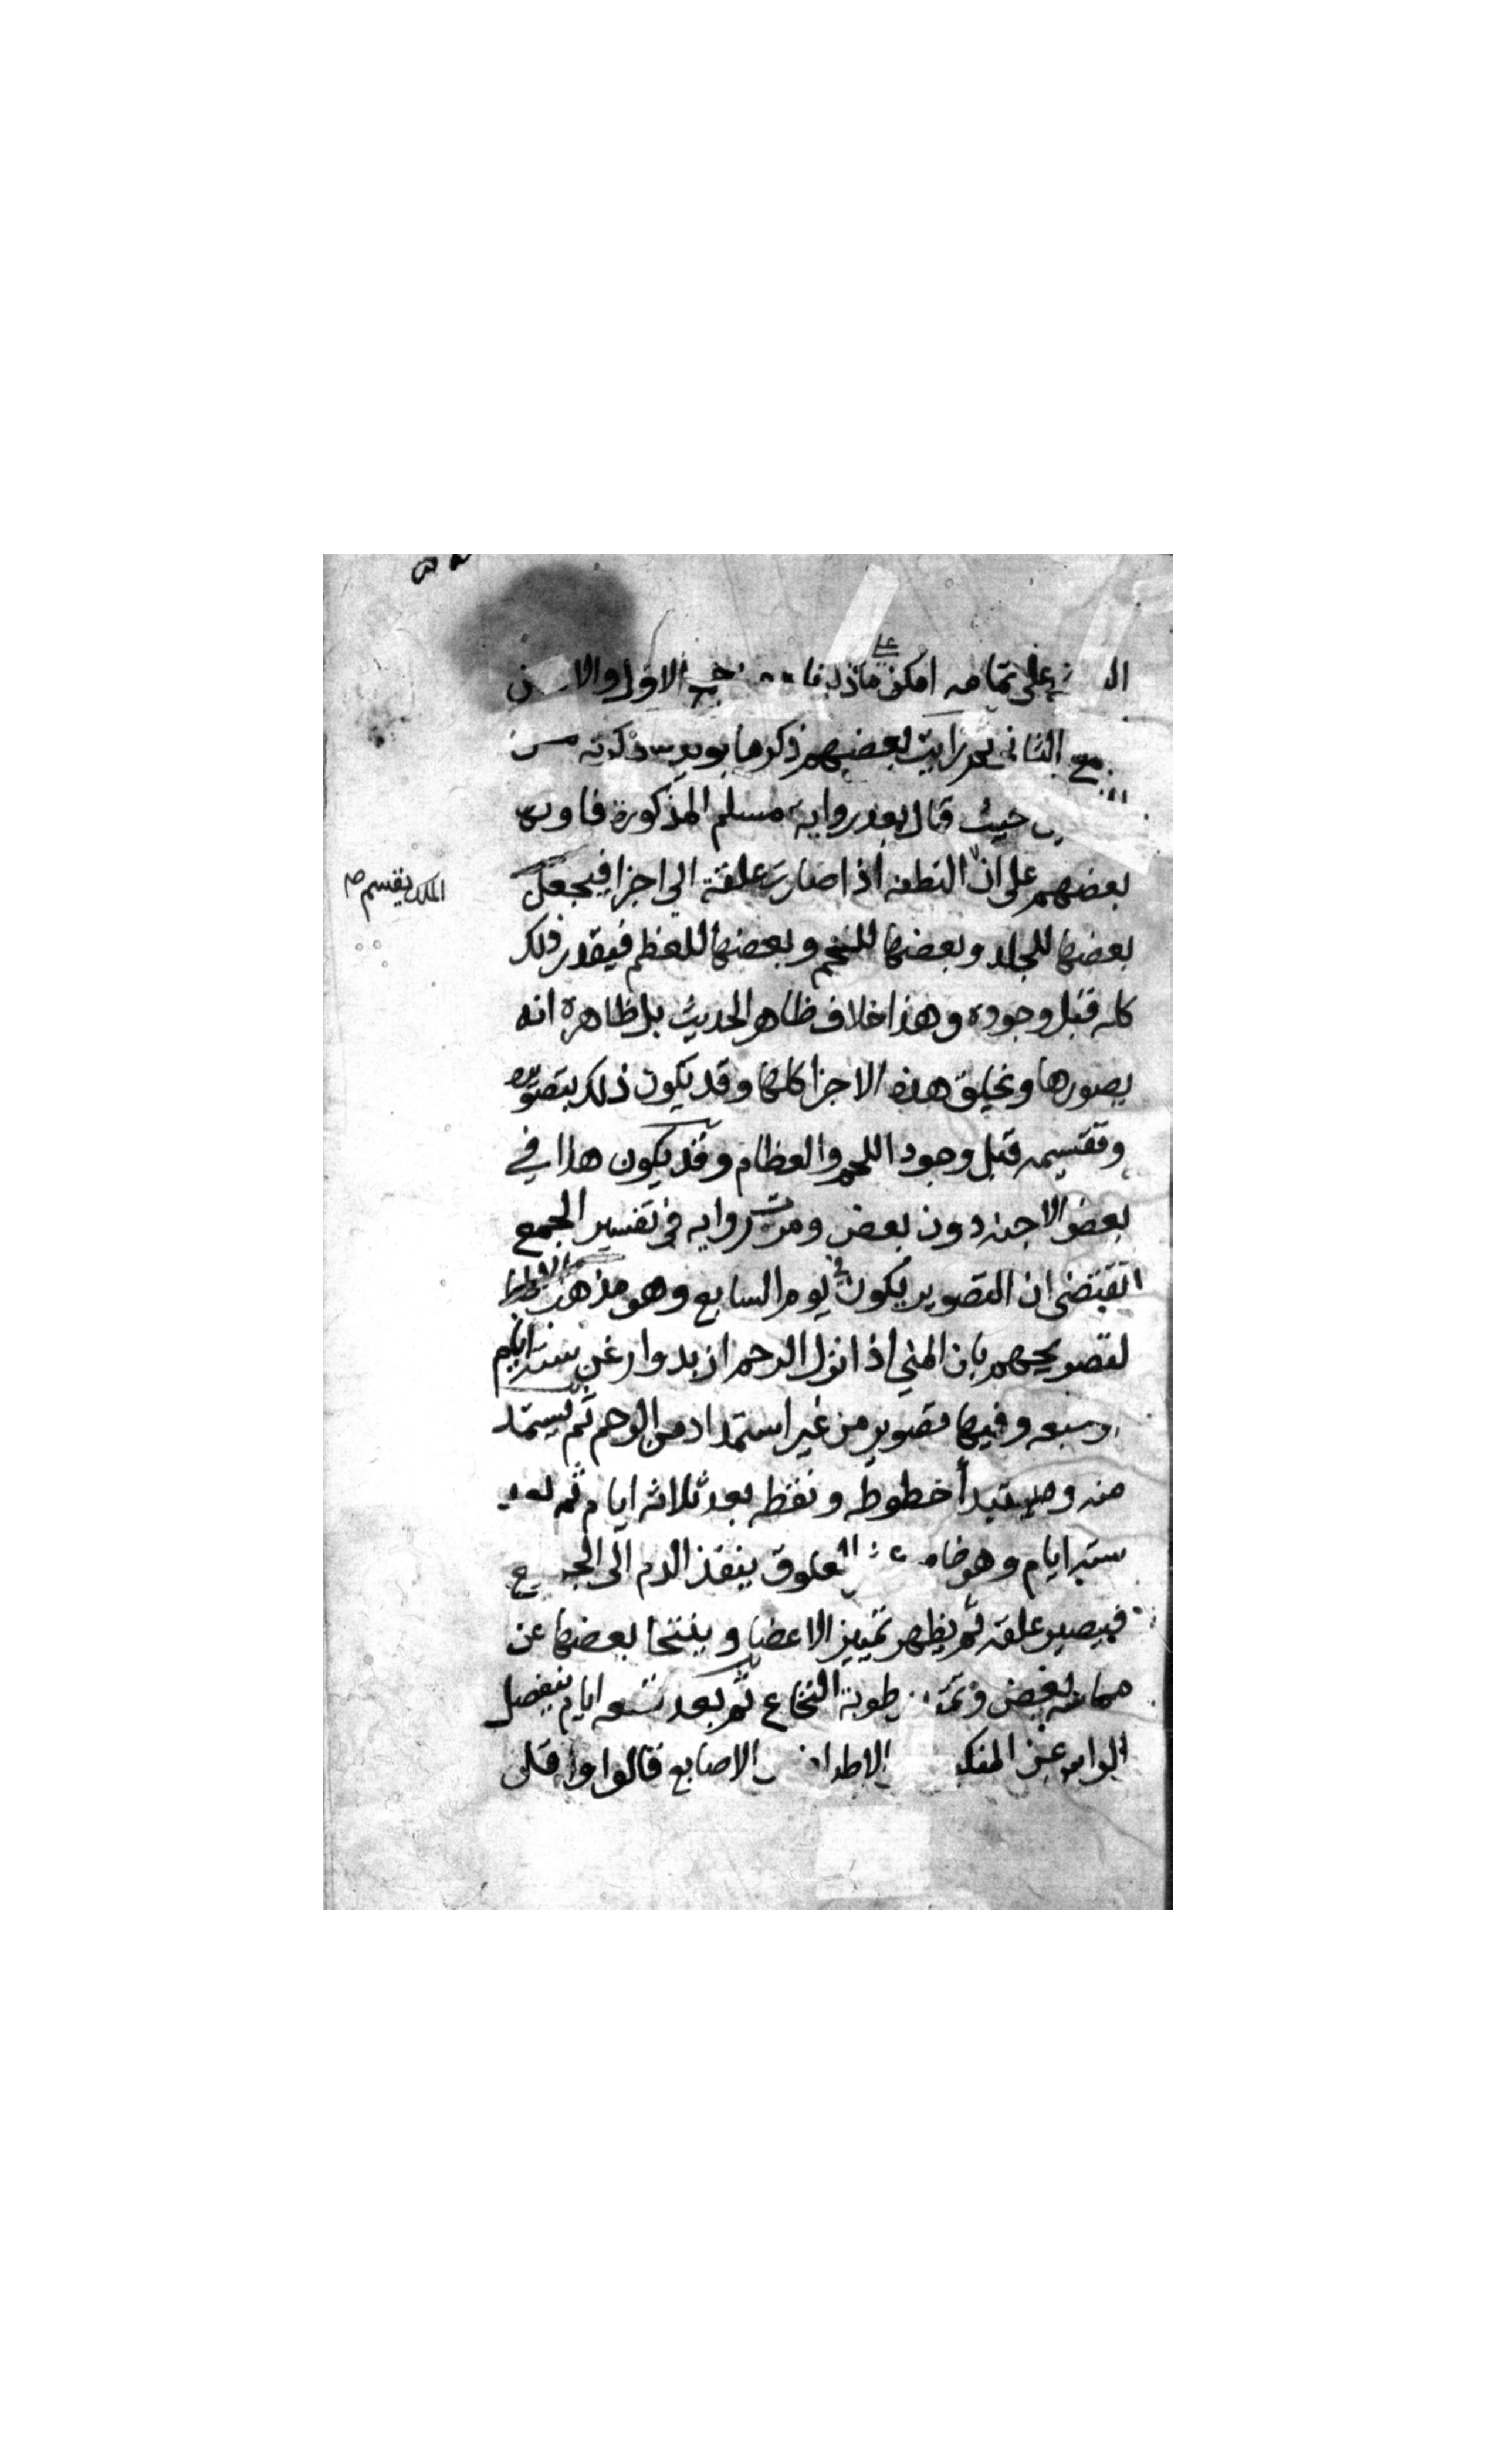 على تمامه امكن الاول والا
الثاني ثم رايت بعضهم ذكر ما يويد ما ذكرته من
حيث قال بعد رواية مسلم المذكورة فاولها
بعضهم على ان النطفه اذا صارت علقة الى اجزا فيجعل
الملك يقسم صح
بعضها للجلد وبعضها للحم وبعضها للعظم فيقدر ذلك
كله قبل وجوده وهذا خلاف ظاهر الحديث بل ظاهره انه
يصورها ويخلق هذه الاجزا كلها وقد يكون ذلك بتصويره
وتقسيمه قبل وجود اللحم والعظام وقد يكون هذا في
بعض الاجنه دون بعض ومرت روايه في تفسير الجمع
تقتضي ان التصوير يكون في يوم السابع وهو مذهب الاطبا
لتصريحهم بان المني اذا نزل الرحم ازبد وارغى ستة ايام
او سبعه وفيها تصوير من غير استمداد من الرحم ثم يستمد
منه ويبتدأ خطوطه ونقطه بعد ثلاثه ايام ثم بعد
ستة ايام وهو العلوق ينفذ الدم الى الجميع
فيصير علقه ثم يظهر تمييز الاعضا ويتنحا بعضها عن
مماسه بعض رطوبة النخاع ثم بعد تسعه ايام ينفصل
الراس عن المنكب الاصابع قالوا واقل